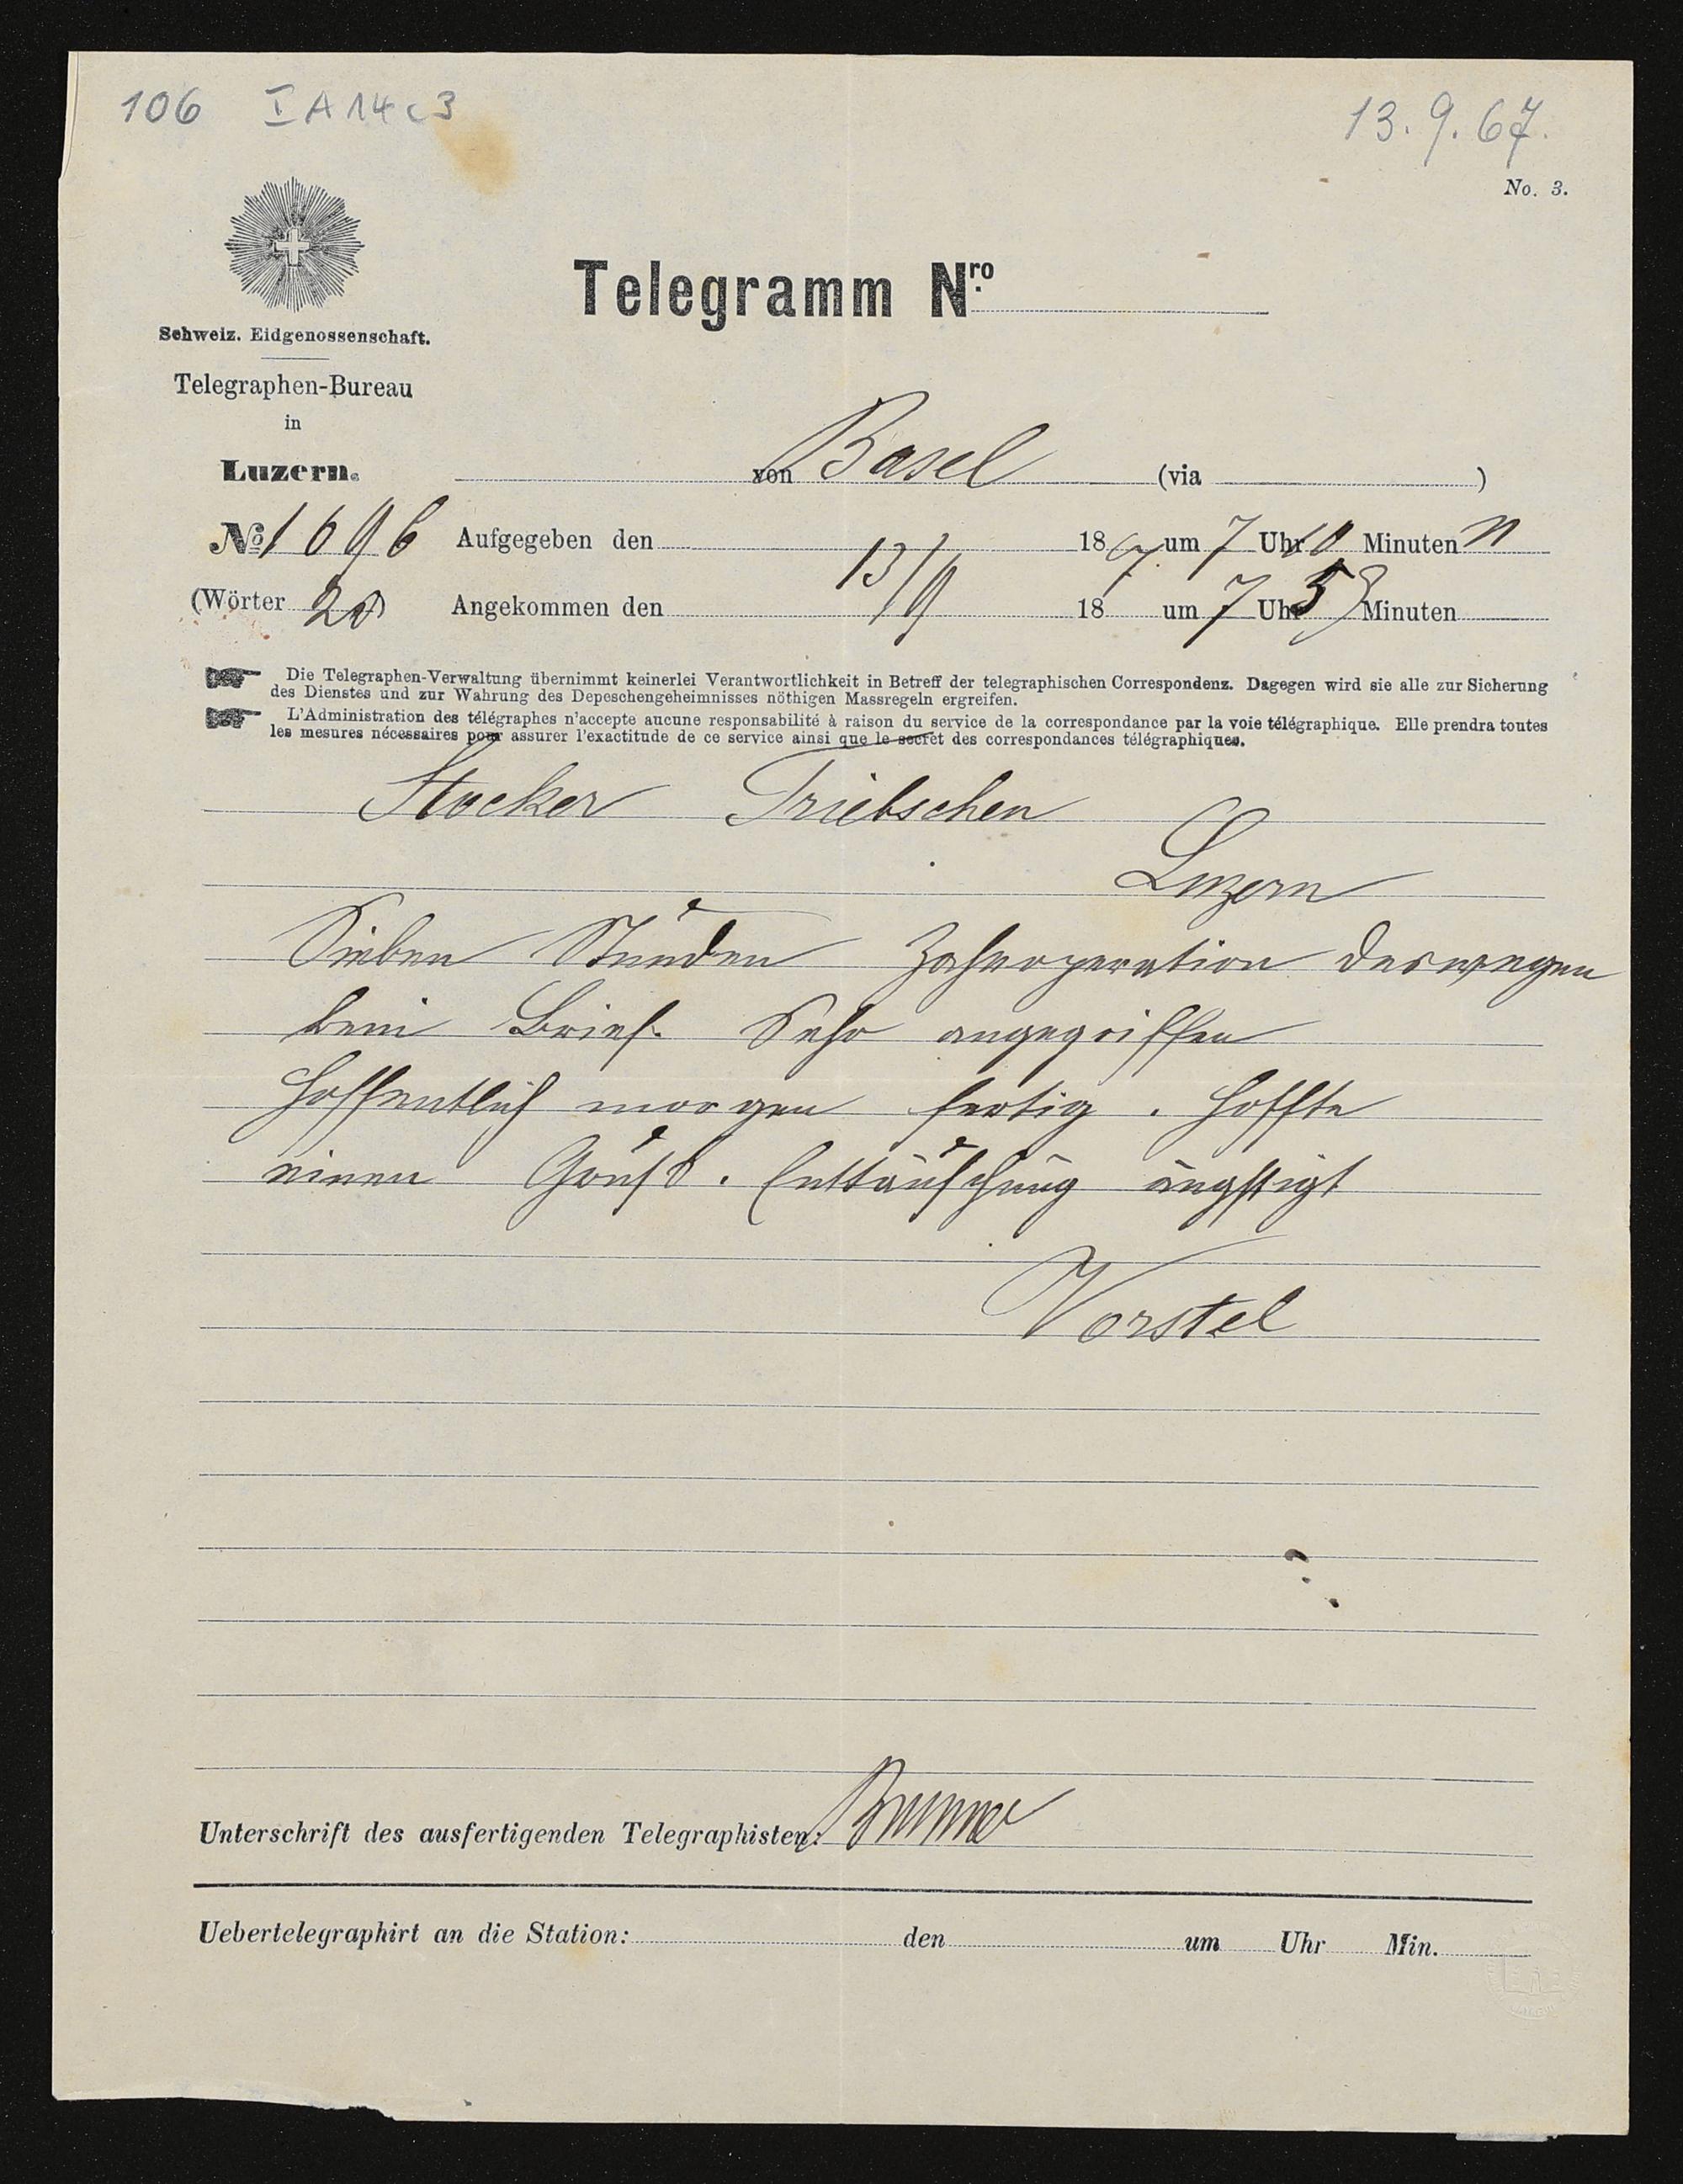 106 I A 14 c 3
13. 9. 67.
No. 3.
Telegramm Nro.
Schweiz. Eidgenossenschaft.
Telegraphen-Bureau
in
Luzern.
von Basel (via )
No 1696 Aufgegeben den 1867 um 7 Uhr 10 Minuten N
13/9
(Wörter 20) Angekommen den 18 um 7 Uhr 58 Minuten
Die Telegraphen-Verwaltung übernimmt keinerlei Verantwortlichkeit in Betreff der telegraphischen Correspondenz. Dagegen wird sie alle zur Sicherung
des Dienstes und zur Wahrung des Depeschengeheimnisses nöthigen Massregeln ergreifen.
L'Administration des télégraphes n'accepte aucune responsabilité à raison du service de la correspondance par la voie télégraphique. Elle prendra toutes
les mesures nécessaires pour assurer l'exactitude de ce service ainsi que le secret des correspondances télégraphiques.
Stocker Triebschen
Luzern
Sieben Stunden Zahnoperation deswegen
kein Brief. Sehr angegriffen
Hoffentlich morgen fertig. Hoffte
einen Gruß. Enttäuschung ängstigt
Vorstel
Unterschrift des ausfertigenden Telegraphisten: Brunner
Uebertelegraphirt an die Station: den um Uhr Min.